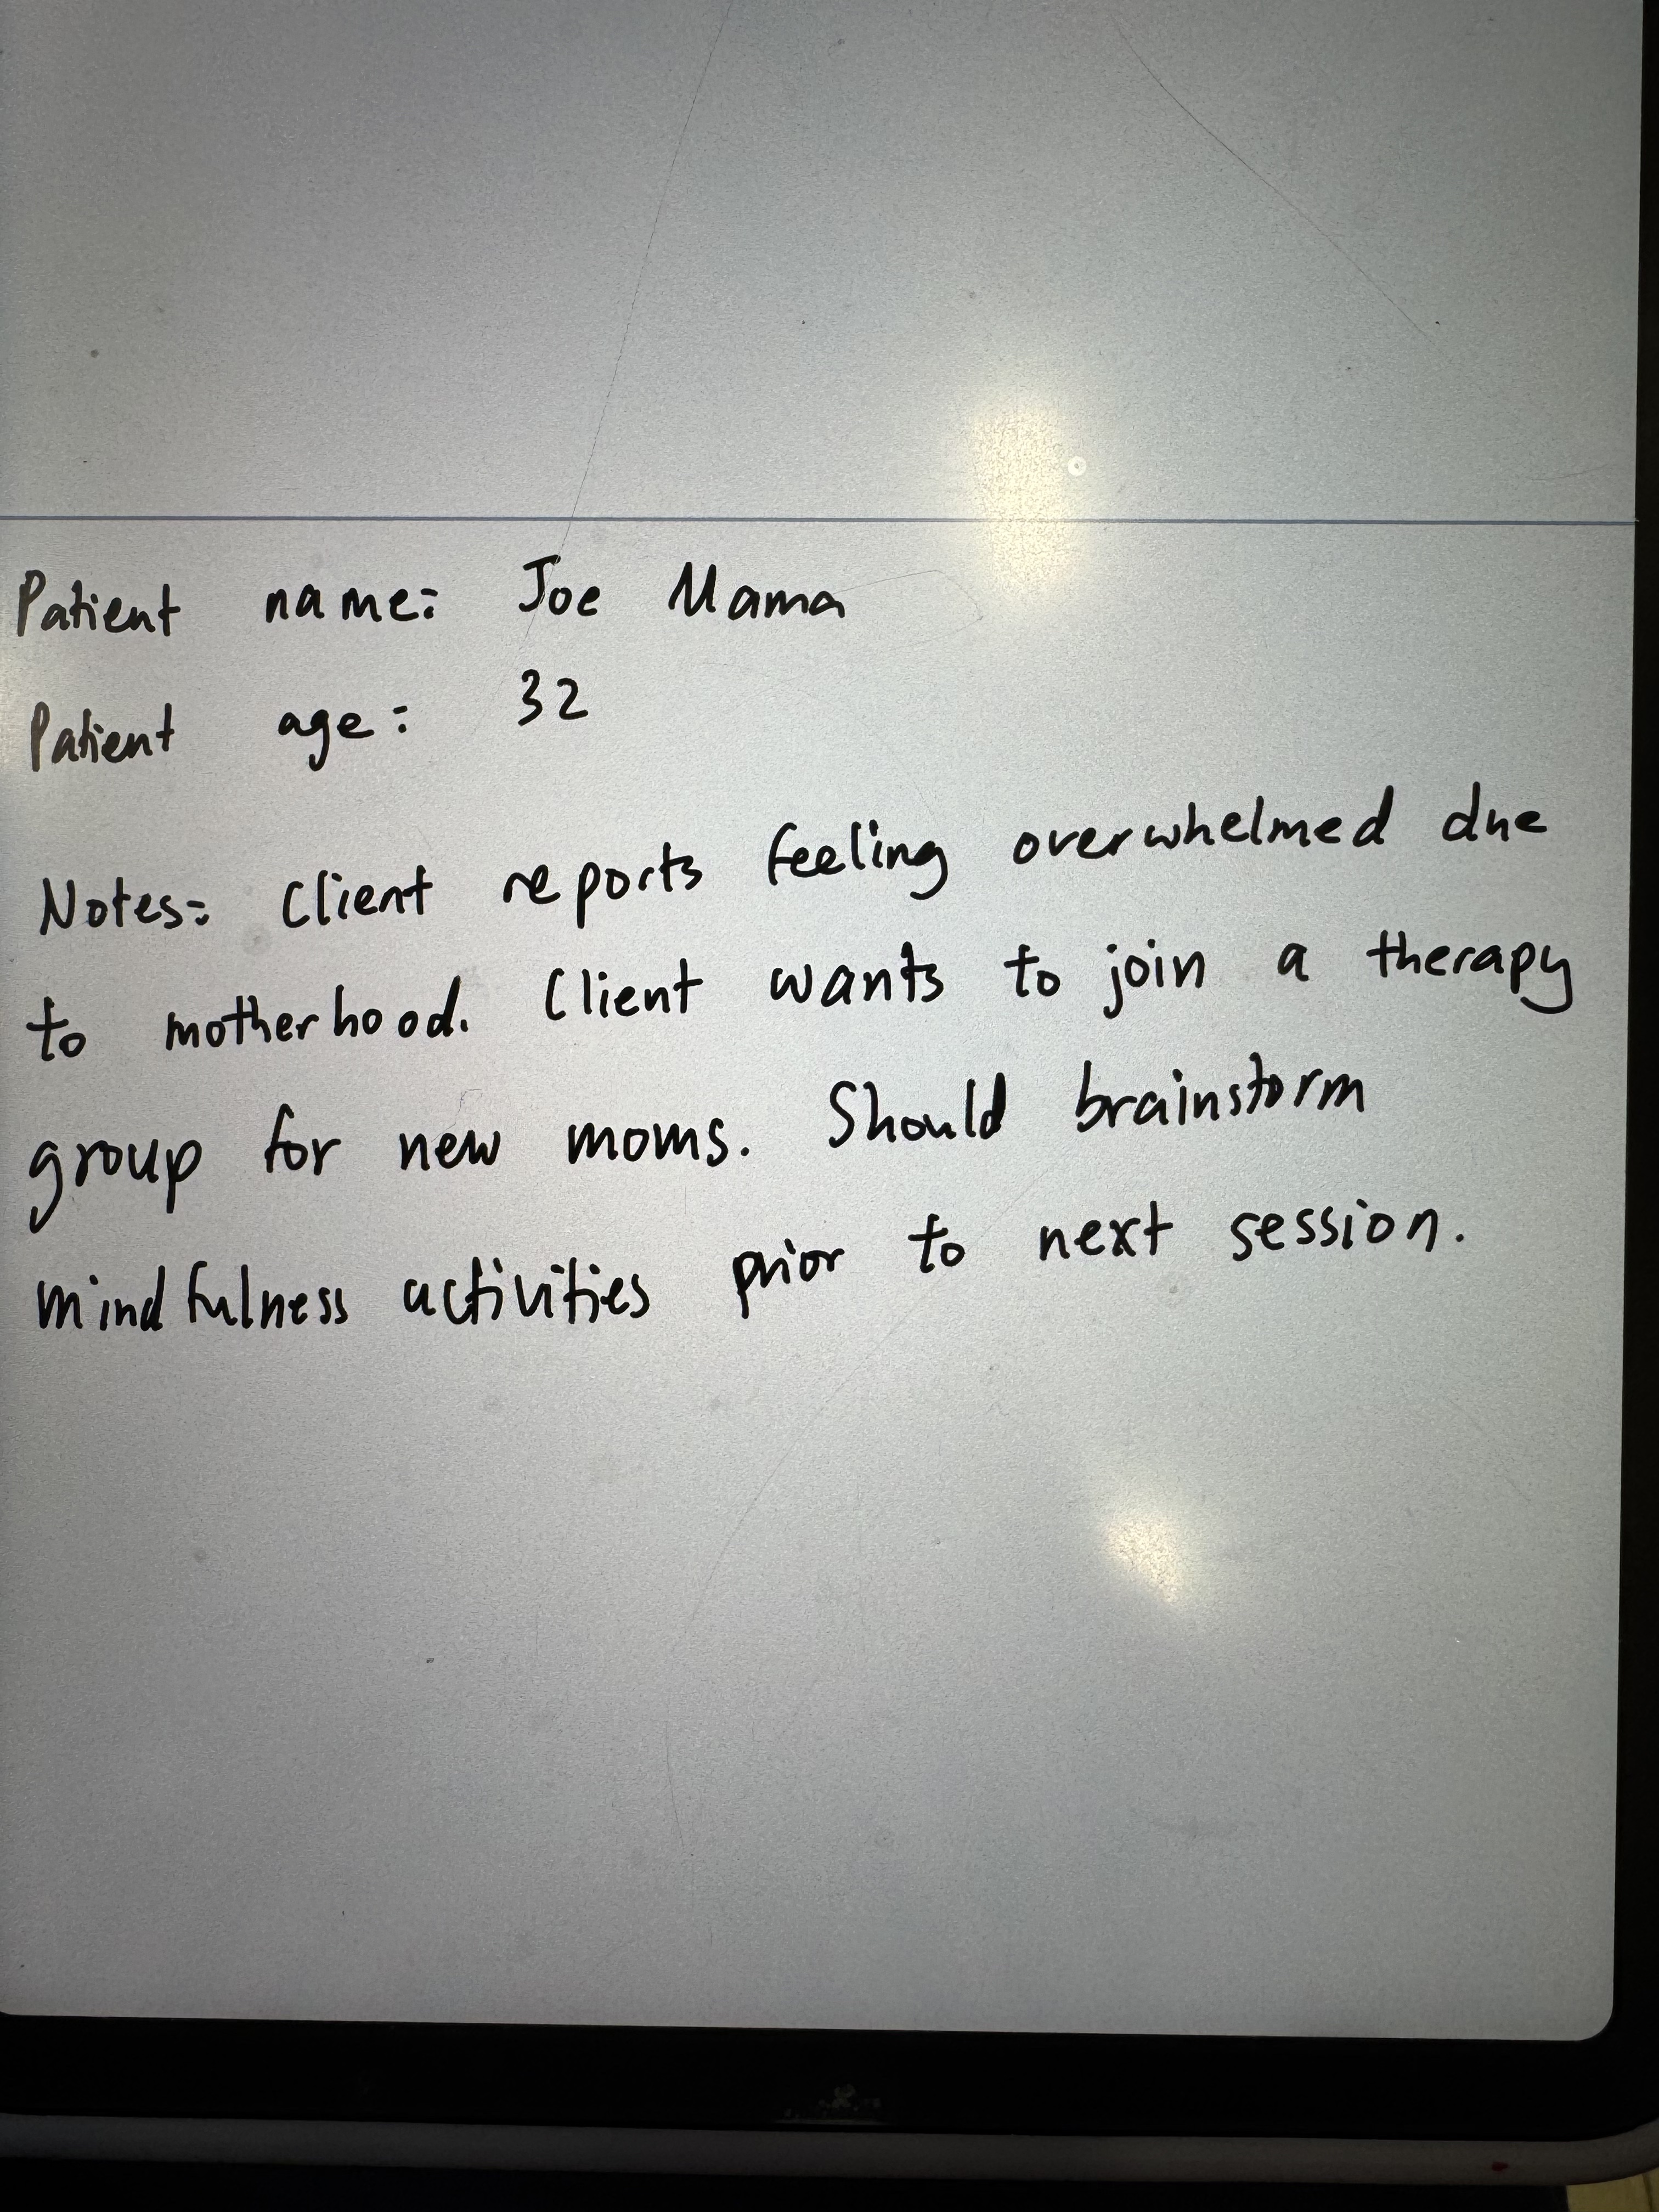 Patient name: Joe Mama
Patient age: 32
Notes: Client reports feeling overwhelmed due
to motherhood. Client wants to join a therapy
group for new moms. Should brainstorm
mindfulness activities prior to next session.